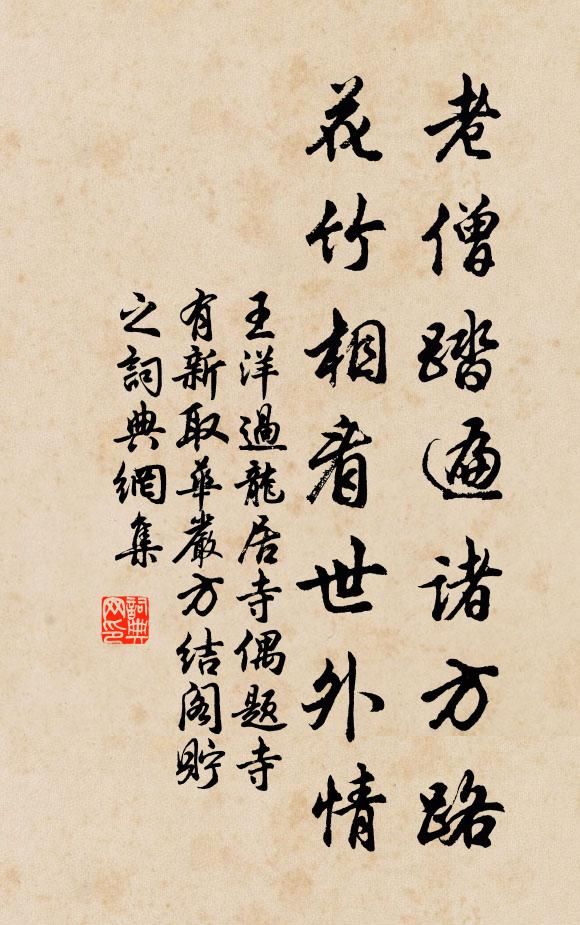 老僧踏遍諸方路
花竹相看世外情
王洋過龍居寺偶题寺
有新取華嚴方結阁貯
之詞典網集
詞典
网印